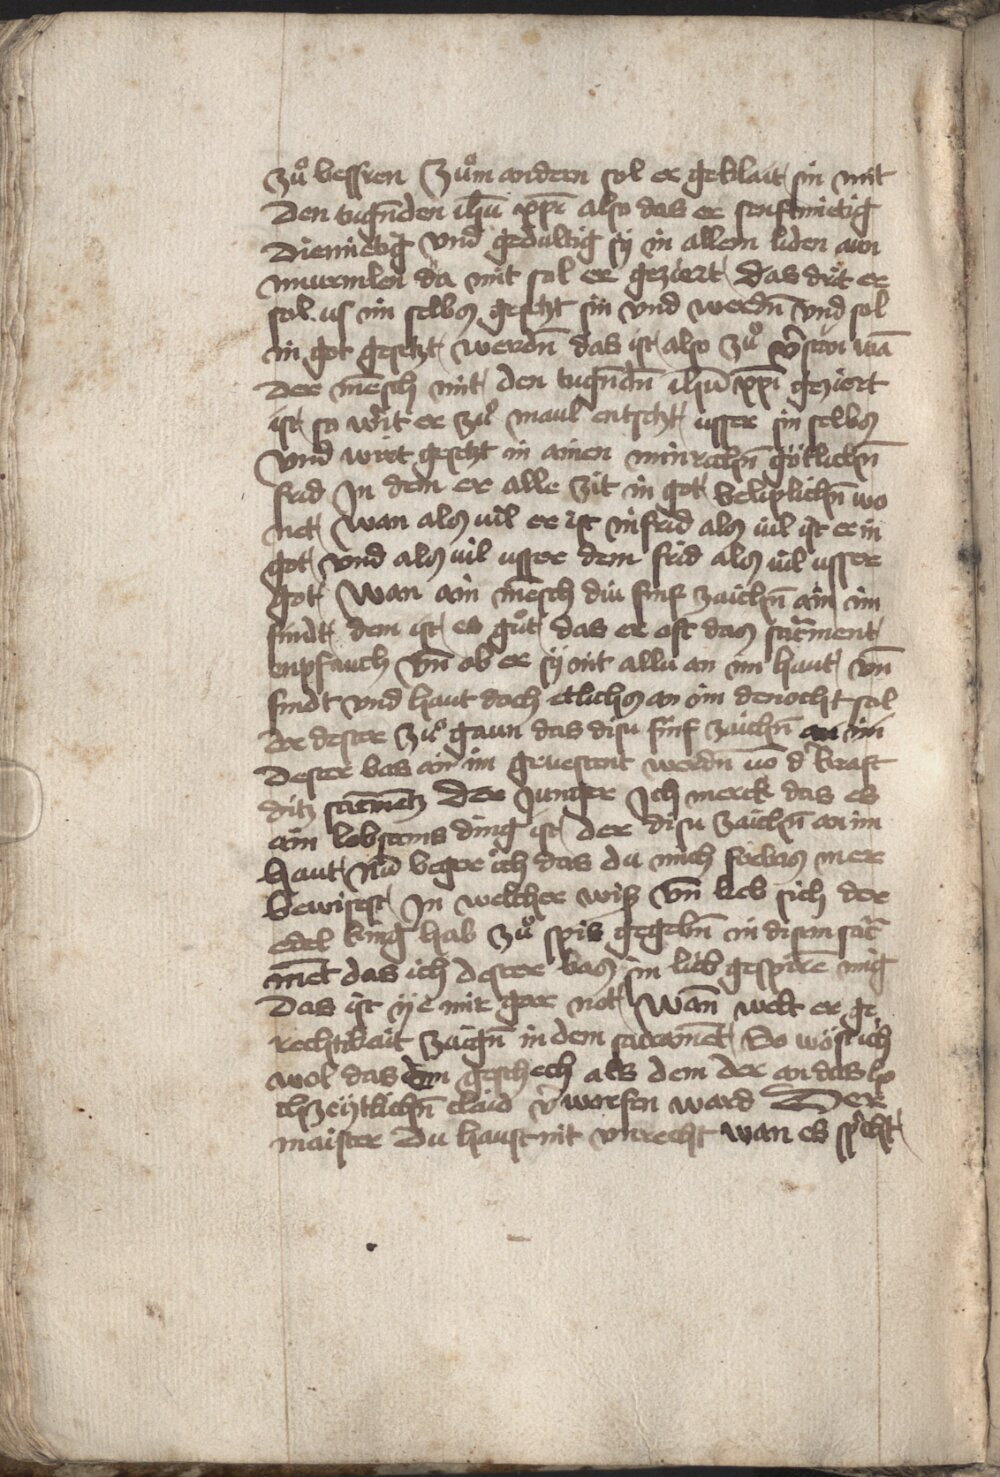 zuͦ bessren Zuͦm andern sol er geklait sin mit
den tugn̄den ihū xp̄i also das er senftmietig
diemietig vnd gedultig sy in allem liden aun
murmlen da mit sol er geziert Das drit er
sol us im selbs gesetzt sin vnd werdn̄ vnd sol
in got gesetzt werdn̄ das ist also zuͦ v̄ston wā
der mēsch mit den tugn̄dn̄ ihū xp̄i geziert
ist so wirt er zuͦ maul entsetzt usser sin selbs
vnd wirt gesetzt in ainen götlichn̄
frid In dem er alle zit in got beliplichn̄ wo
net Wan als uil er ist in frid als uil ist er in
got vnd als uil usser dem frid als uil usser
got Wan ain mēsch diu finf zaichn̄ an im
findt dem ist es guͦt das er oft das sacͬment
enpfauch vn̄ ob er sy nit allu an im haut vn̄
findt vnd haut doch etlichs an im denocht sol
er dester zuͦ gaun das disu finf zaichn̄ an im
dester bas an im geuestent werdn̄ uō d̄ kraft
ditz sacͬmētz Der Junger Ich merck das es
ain lobsams ding ist der disu zaichn̄ an im
haut Nū beger ich das du mich fürbas mer
bewisest In welcher wis vn̄ lieb sich der
edel king hab zuͦ spis gegebn̄ in disem sacͬ
mēt das ich dester bas sin lieb gespiren mig
Das ist ye mir gar not Wān welt er ge
rechtikait zaign̄ in dem sacramēt So wöst ich
wol das im geschech als dem der an das ho
chzeytlichn̄ claid v̄worfen ward Der
maister Du haust nit vnrecht wan es spͥcht